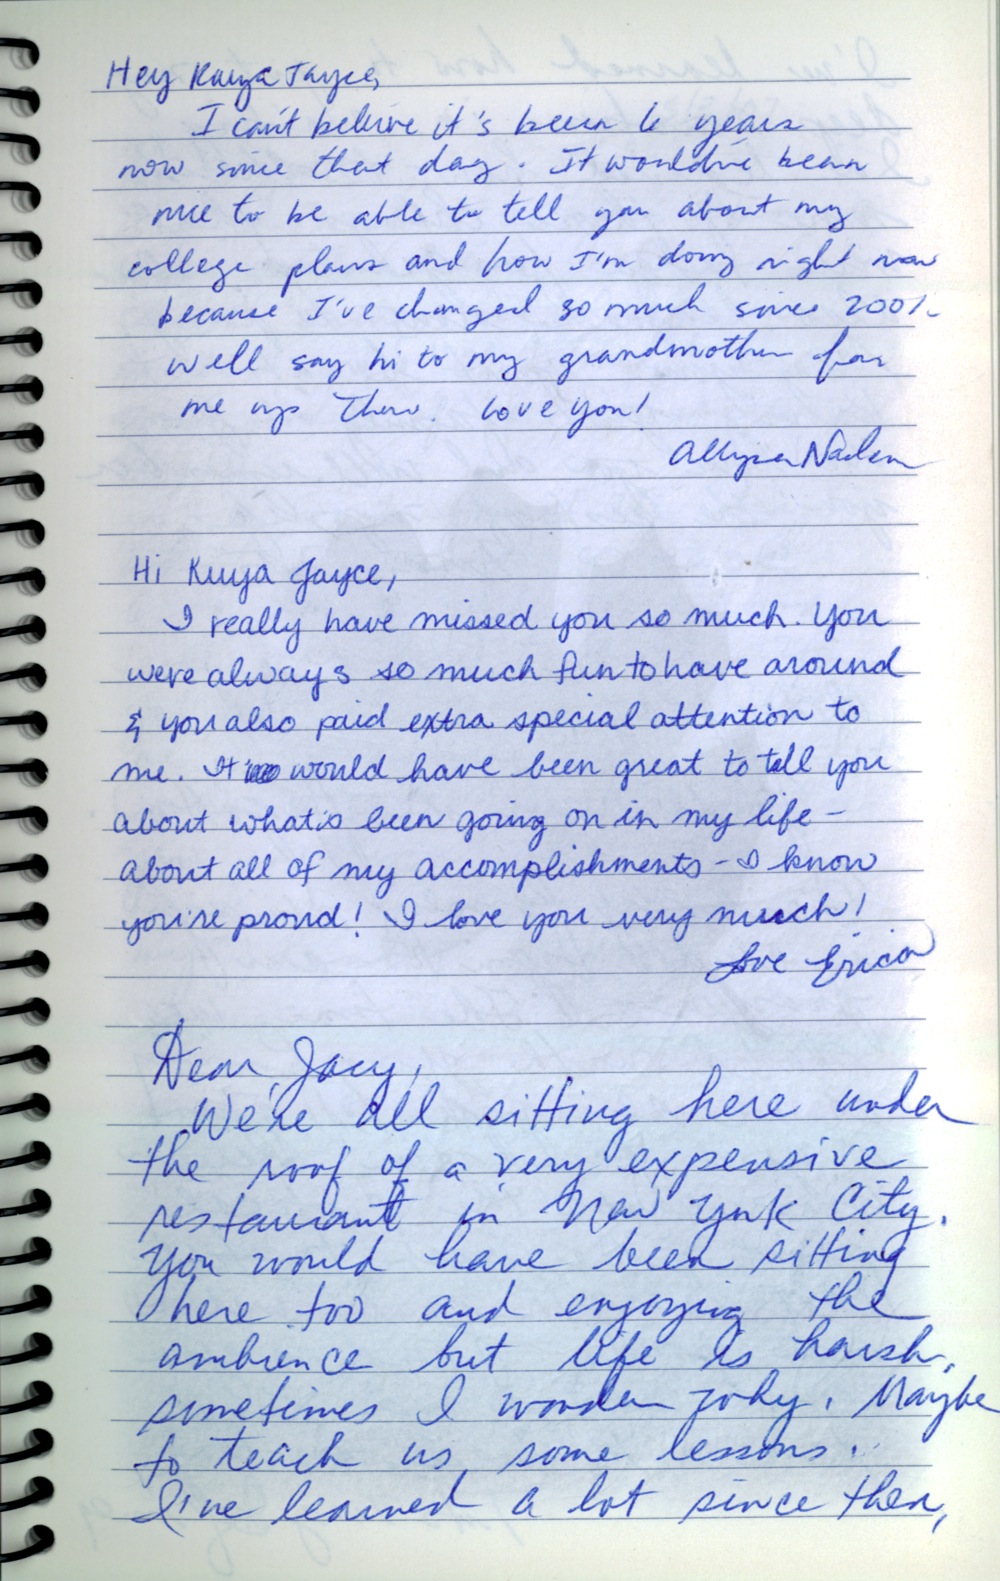 Hey Kuya Jayce,
I can't believe it's been 6 years
now since that day. It would've been
nice to be able to tell you about my
college plans and how I'm doing right now
because I've changed so much since 2001.
Well say hi to my grandmother for
me up there. Love you!
Hi Kuya Jayce,
I really have missed you so much. You
were always so much fun to have around
& you also paid extra special attention to
me. It would have been great to tell you
about what's been going on in my life –
about all of my accomplishments – I know
you're proud! I love you very much!
Love Erica
Dear Jacy,
We're all sitting here under
the roof of a very expensive
restaurant in New York City.
You would have been sitting
here too and enjoying the
ambience but life is harsh,
sometimes I wonder why. Maybe
to teach us some lessons.
I've learned a lot since then,